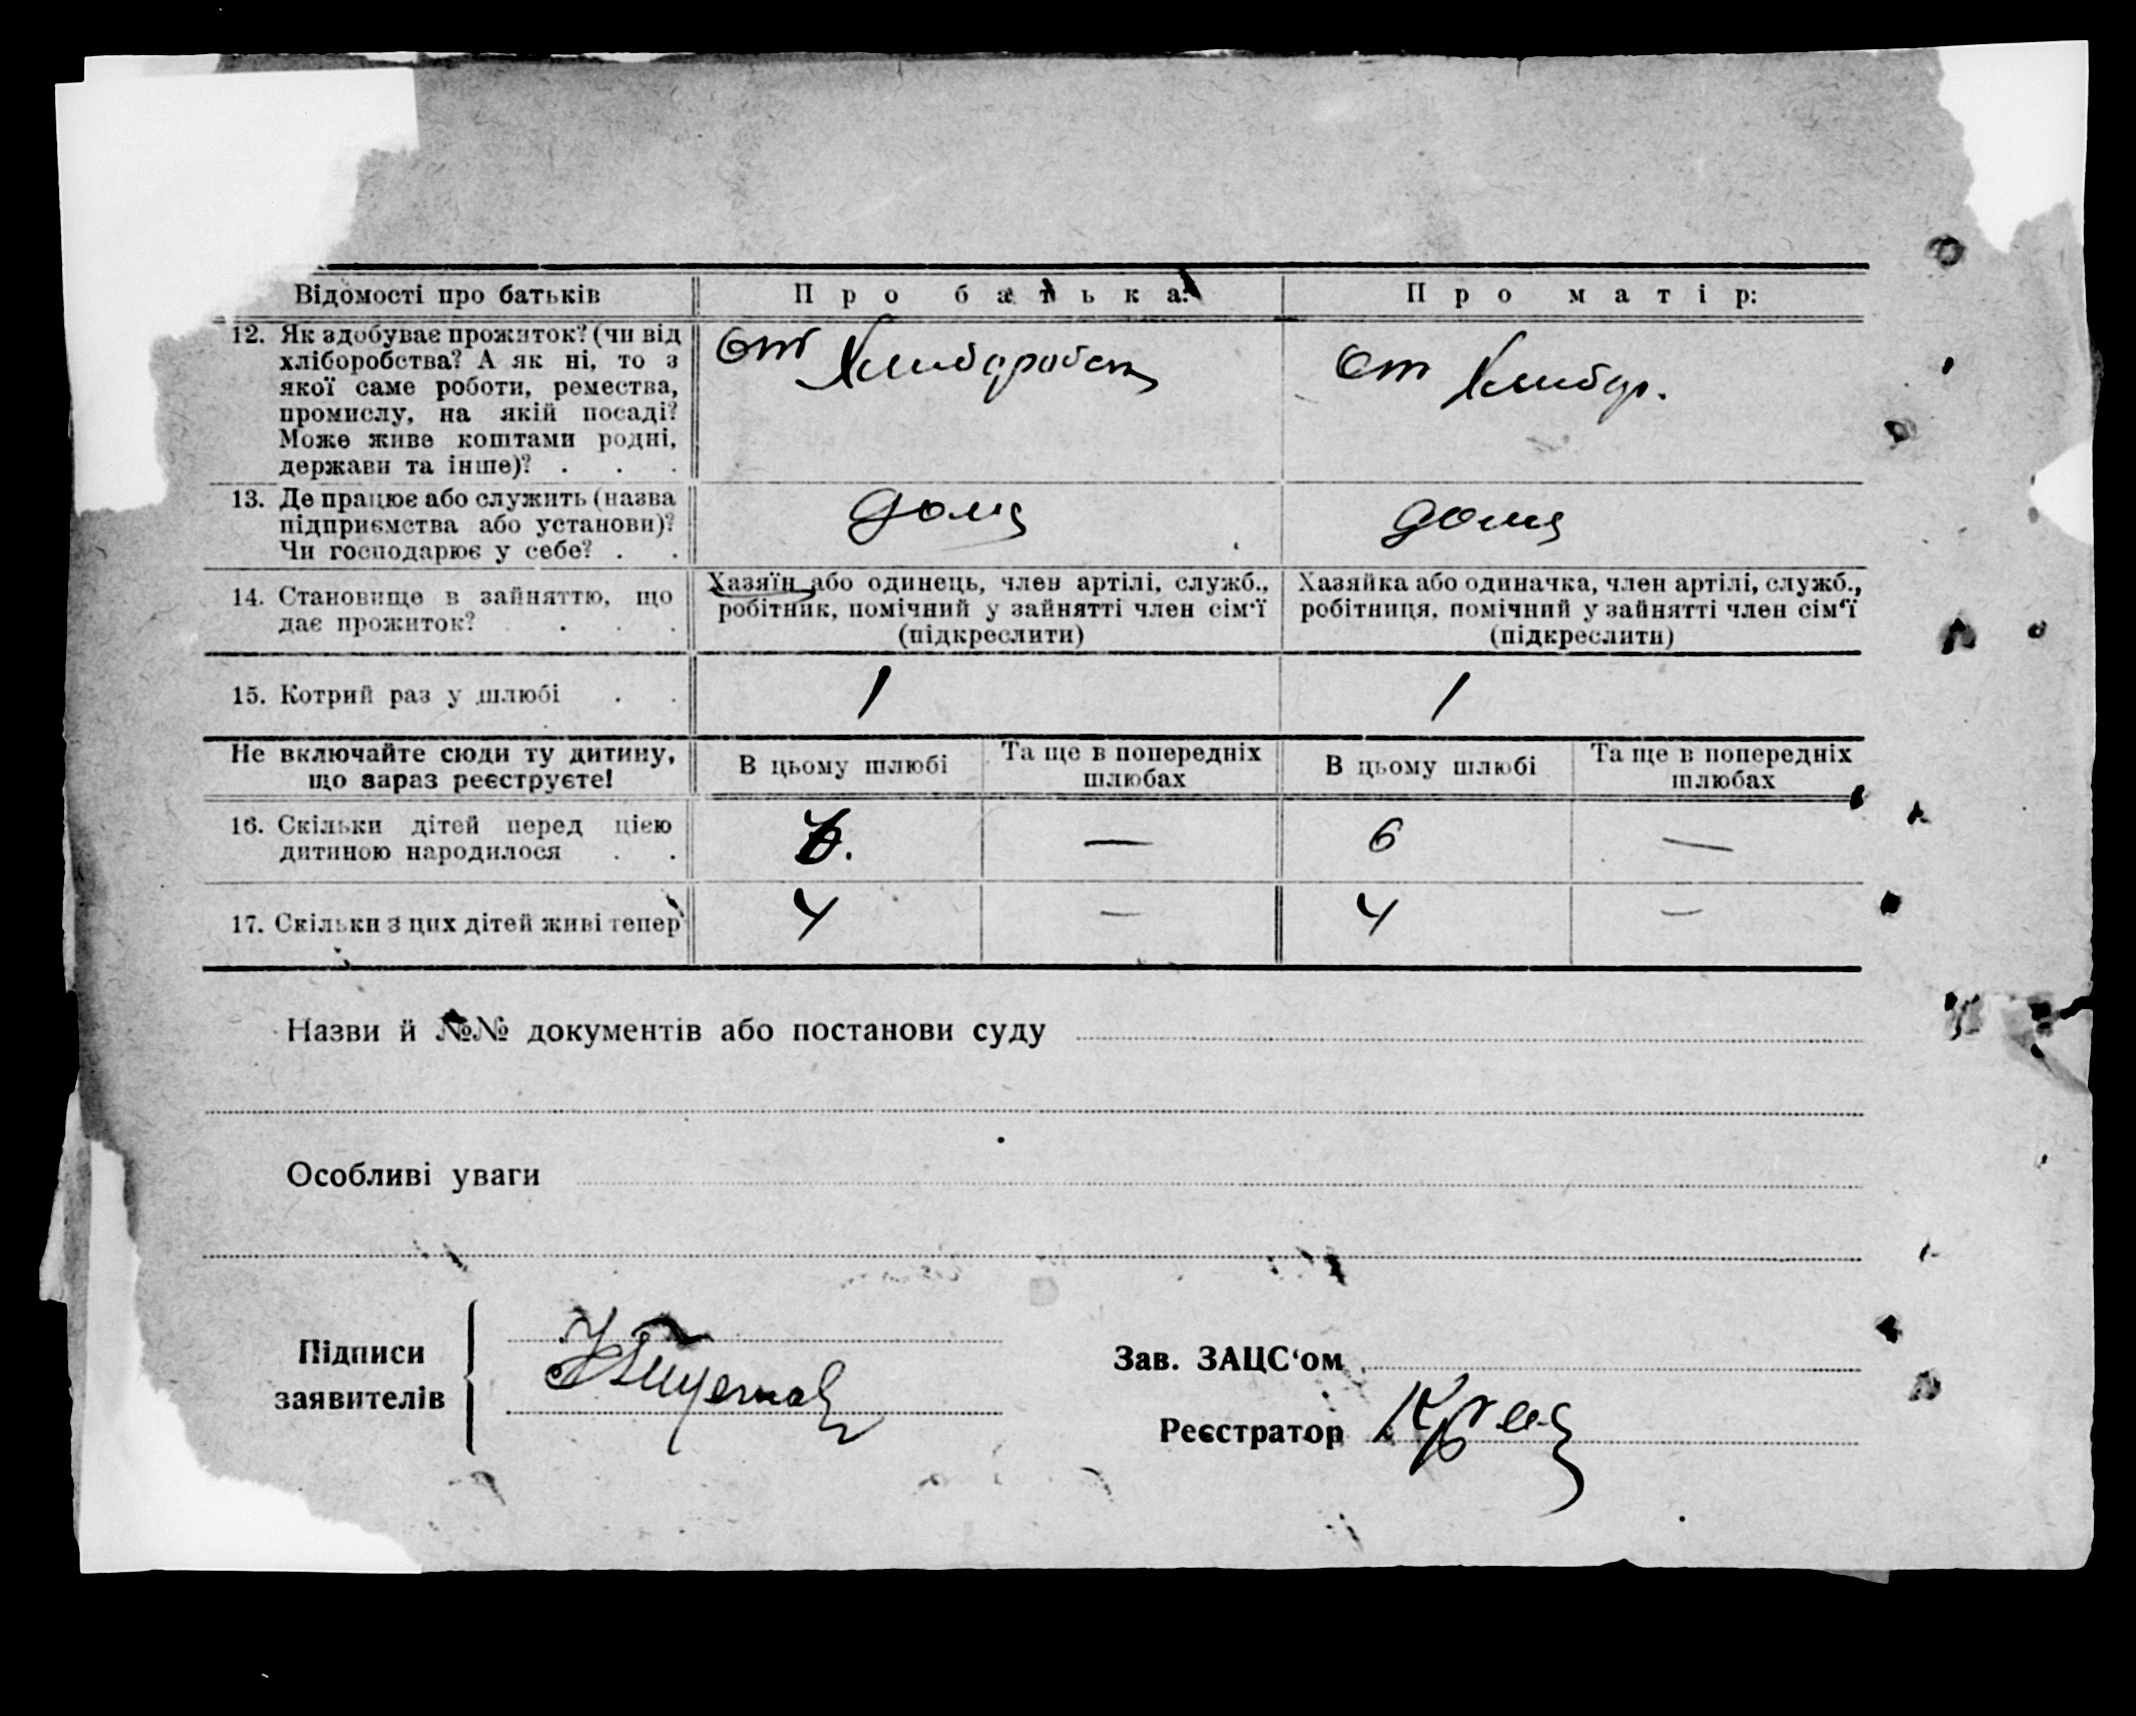 Відомості про батьків
Про батька:
Про матір:
12. Як здобуває прожиток? (чи від
хліборобства? А як ні, то з
якої саме роботи, ремества,
промислу, на якій посаді?
Може живе коштами родні,
держави та інше)? . . .
от
от
13. Де працює або служить (назва
підприємства або установи)?
Чи господарює у себе? . .
дома
дома
14. Становище в зайняттю, що
дає прожиток? . . .
Хазяїн або одинець, член артілі, служб.,
робітник, помічний у зайнятті член сім'ї
(підкреслити)
Хазяйка або одиначка, член артілі, служб.,
робітниця, помічний у зайнятті член сім'ї
(підкреслити)
15. Котрий раз у шлюбі . .
1
1
Не включайте сюди ту дитину,
що зараз реєструєте!
В цьому шлюбі
Та ще в попередніх
шлюбах
В цьому шлюбі
Та ще в попередніх
шлюбах
16. Скільки дітей перед цією
дитиною народилося . .
6. — 6 —
17. Скільки з цих дітей живі тепер
4 — 4 —
Назви й №№ документів або постанови суду
Особливі уваги
Підписи
заявителів
Зав. ЗАЦС'ом
Реєстратор